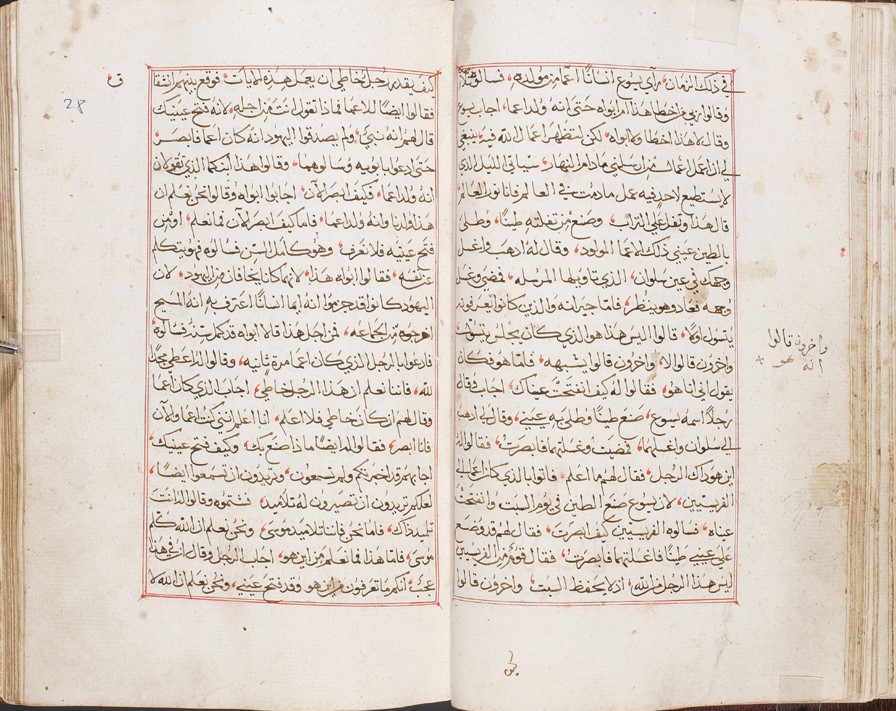 في ذلك الزمان رأي يسوع انسانًا اعما من مولده فسالوه تلاميذه
وقالوا من اخطا هذا ام ابواه حتى انه ولد اعما اجاب يسوع
وقال لا هذا اخطا ولا ابواه لكن لتظهر اعمال الله فيه ينبغي
لي ان اعمل اعمال من ارسلني مادام النهار سياتي الليل الذي
لا يستطيع احد فيه عمل مادمت في العالم فانا نور العالم
قال هذا وتفل علي التراب وصنع من تفلته طينًا وطلي
بالطين عيني ذلك الاعما المولود وقال له اذهب واغسل
وجهك في عين سلوان الذي تاويلها المرسله فمضي وغسل
وجهه فعاد وهو ينظر فاما جيرانه والذين كانوا يعرفونه
يتسول اولًا قالوا اليس هذا هو الذي كان يجلس يتسول
واخرون قالوا لا واخرون قالوا يشبهه فلما هو فكان
يقول اني انا هو فقالوا له كيف انفتحت عيناك اجاب وقال
رجلًا اسمه يسوع صنع طينًا وطلي به عيني وقال لي اذهب
الي سلوان واغسلهما فمضيت وغسلتهما فابصرت فقالوا له
اين هو ذاك الرجل فقال لهم ما اعلم فاتوا بالذي كان اعمي الي
الفريسيين لان يسوع صنع الطين في يوم السبت وانفتحت
عيناه فسالوه الفريسيين كيف ابصرت فقال لهم قد وضع
علي عيني طينًا فاغسلتهما فابصرت فقال قوم من الفريسيين
ليس هذا الرجل من الله اذ لا يحفظ السبت واخرون قالوا
واخرون قالوا
انه هو
ق
28
كيف يقدر رجل خاطي ان يعمل هذه الايات فوقع بينهم انشقاق
فقالوا ايضًا للاعما فماذا تقول انت من اجله لانه فتح عينيك
قال لهم انه نبي ولم يصدقوا اليهود انه كان اعما فابصر
حتى ادعوا بابويه وسالوهما وقالوا هذا ابنكما الذي تقولان
انه ولد اعما فكيف ابصر الآن اجابوا ابواه وقالوا نحن نعلم ان
هذا ولدنا وانه ولد اعما فاما كيف ابصر الآن فما نعلم او من
فتح عينيه فلا نعرف وهو كامل السن فسالوه فهو يتكلم
عن نفسه فقالوا ابواه هذا لانهما كانا يخافان من اليهود لان
اليهود كانوا قد جزموا انه ايما انسانًا اعترف به انه المسيح
اخرجوه من الجماعه فمن اجل هذا قالا ابواه قد كمل سنه فسالوه
فادعوا بالرجل الذي كان اعما مرة ثانيه وقالوا له اعطي مجدًا
لله فاننا نعلم ان هذا الرجل خاطي اجاب الذي كان اعما
وقال لهم ان كان خاطي فلا اعلم انا اعلم اني كنت اعما والآن
فانا ابصر فقالوا له ايضًا ماذا صنع بك وكيف فتح عينيك
اجابهم قد اخبرتكم ولم تسمعون وتريدون ان تسمعوا ايضًا
لعلكم تريدون ان تصيرون له تلاميذ فشتموه وقالوا له انت
تلميذ ذاك فاما نحن فاننا تلاميذ موسي ونحن نعلم ان الله كلم
موسي فاما هذا فما نعلم من اين هو اجاب الرجل وقال ان في هذا
عجب انكم ما تعرفون من اين هو وقد فتح عيني ونحن نعلم ان الله لا